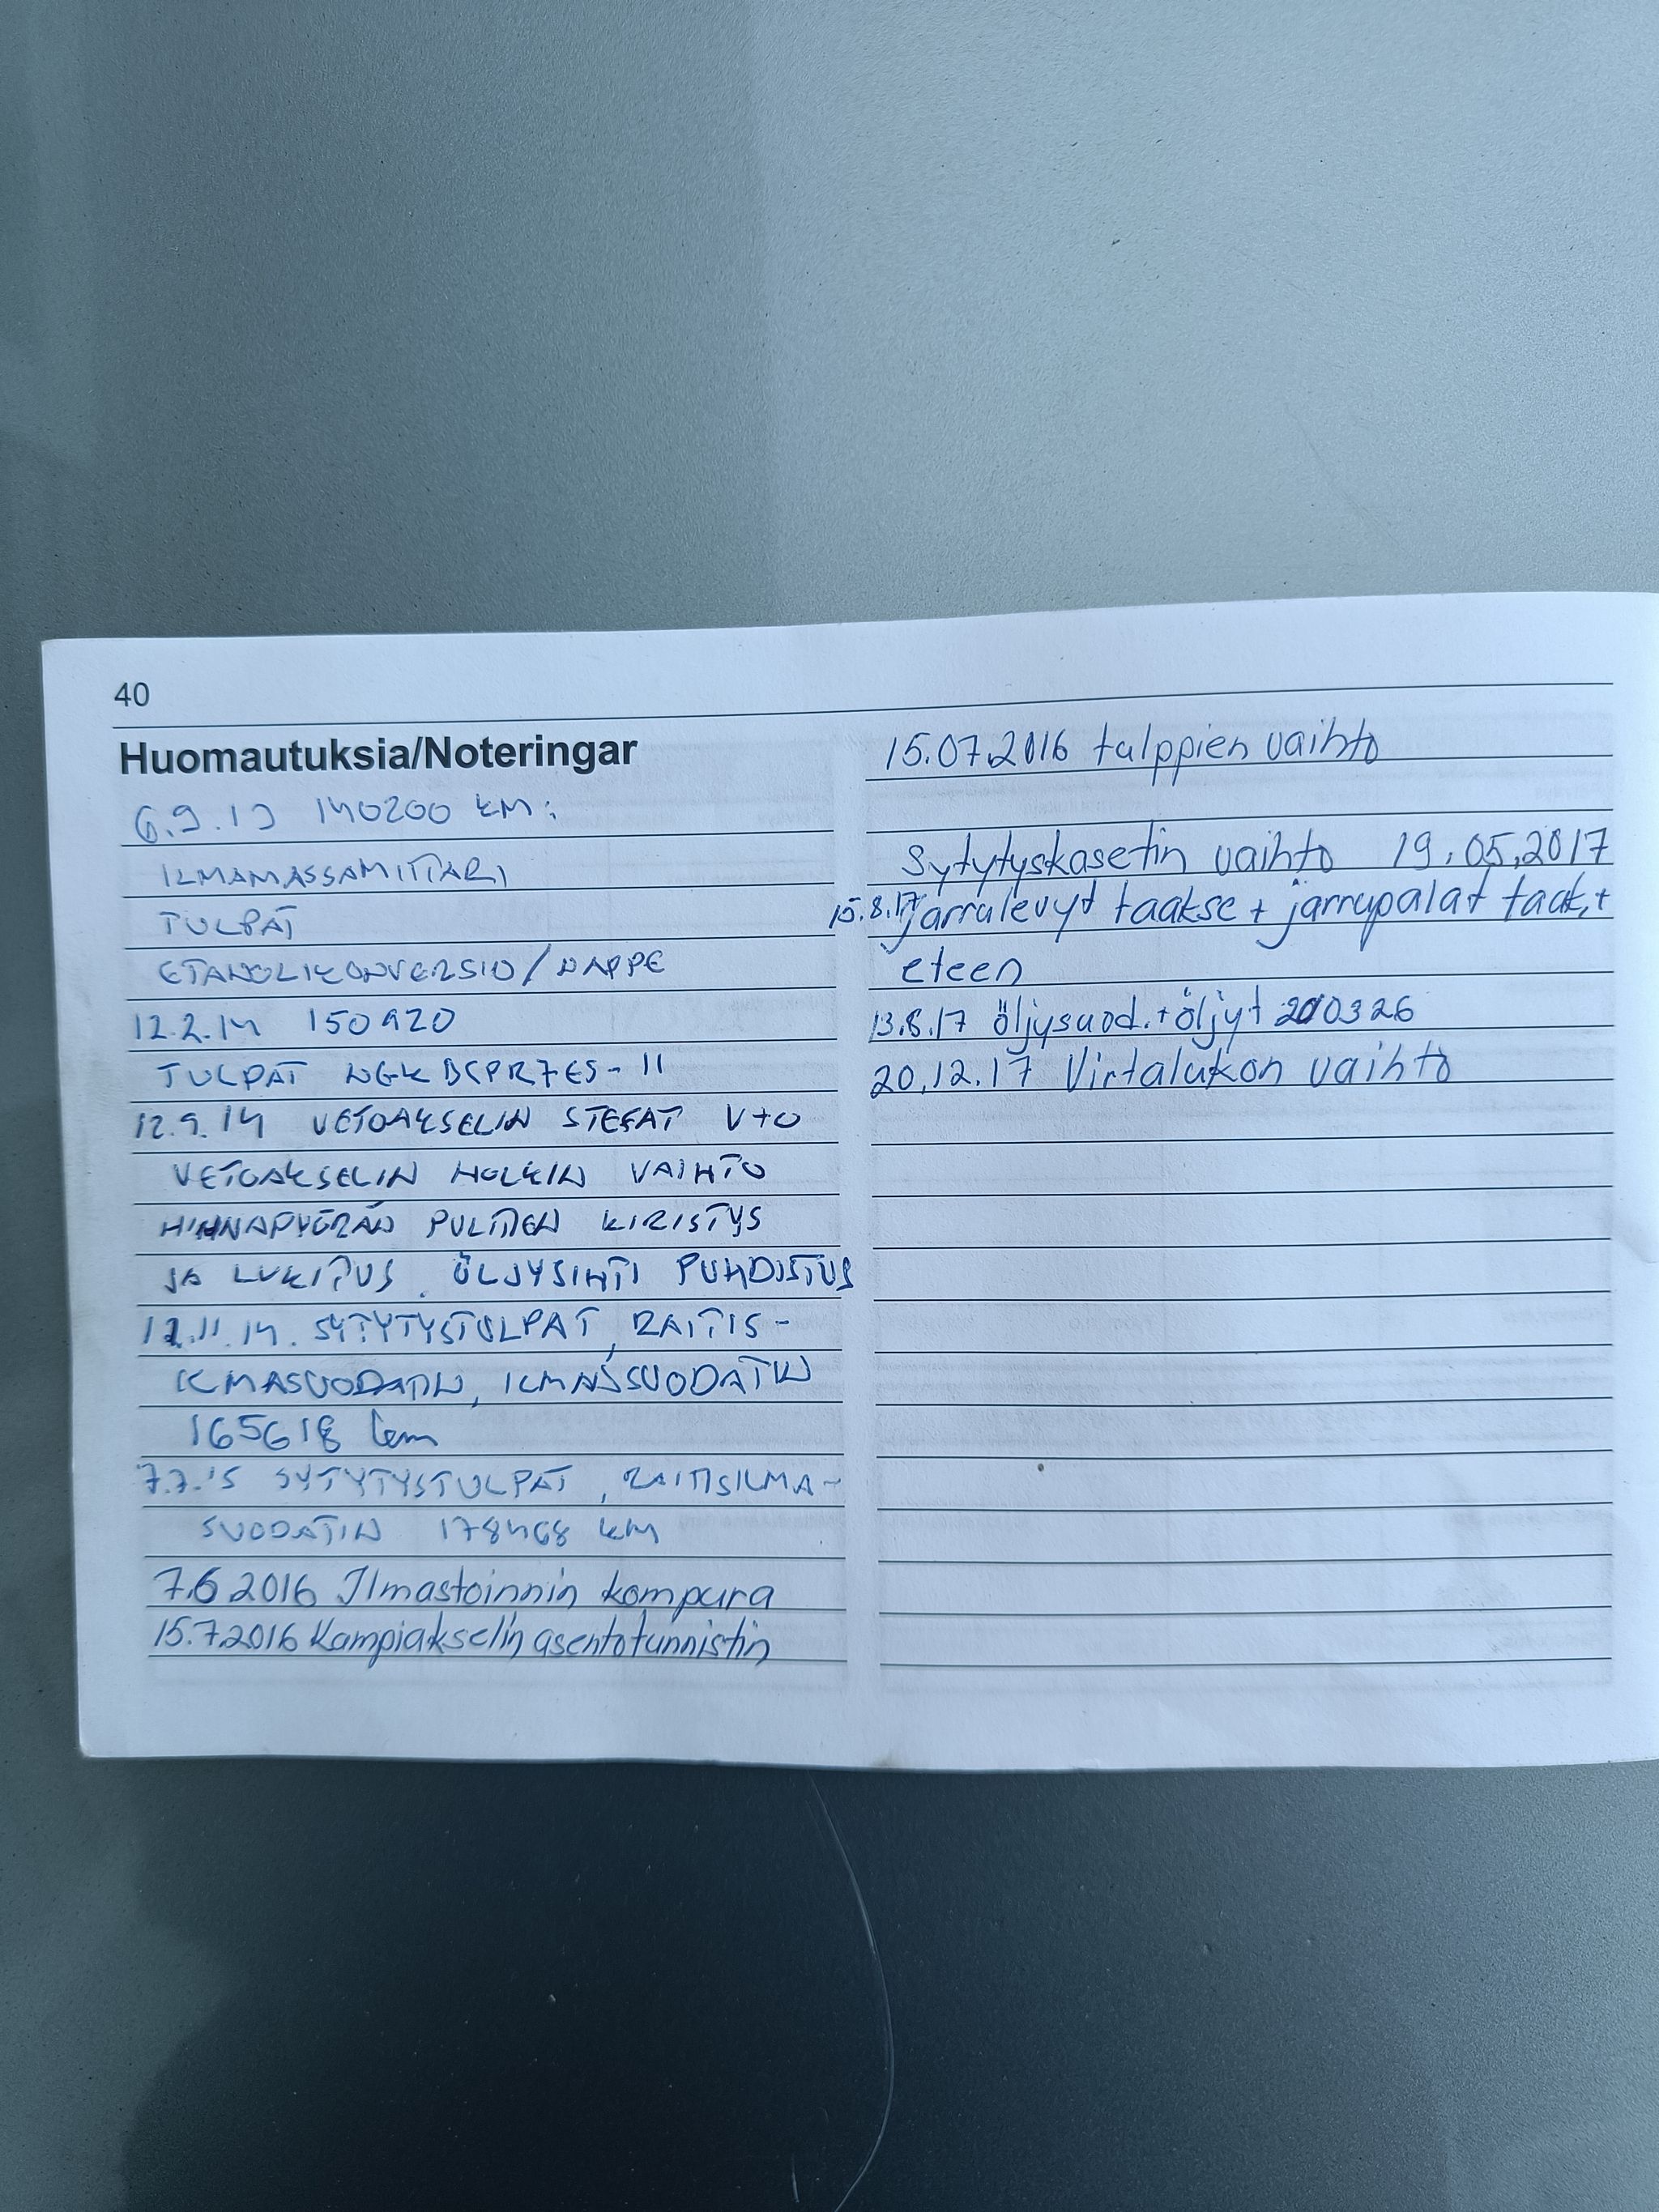 40
Huomautuksia/Noteringar
6.9.13 140200 KM:
ILMAMASSAMITTARI
TULPAT
ETANOLIKONVERSIO/NAPPE
12.2.14 150920
TULPAT NGK BCPR7ES-11
12.9.14 VETOAKSELIN STEFAT V+O
VETOAKSELIN HOLKIN VAIHTO
HIHNAPYÖRÄN PULTTIEN KIRISTYS
JA LUKITUS. ÖLJYSIHTI PUHDISTUS
12.11.14. SYTYTYSTULPAT, RAITIS-
ILMASUODATIN, ILMANSUODATIN
165618 km
7.7.15 SYTYTYSTULPAT, RAITISILMA-
SUODATIN 178468 KM
7.6 2016 Ilmastoinnin kompura
15.7.2016 Kampiakselin asentotunnistin
15.07.2016 tulppien vaihto
Sytytyskasetin vaihto 19.05.2017
15.8.17 Jarrulevyt taakse + jarrupalat taak.+
eteen
13.8.17 Öljysuod.+öljyt 200326
20.12.17 Virtalukon vaihto